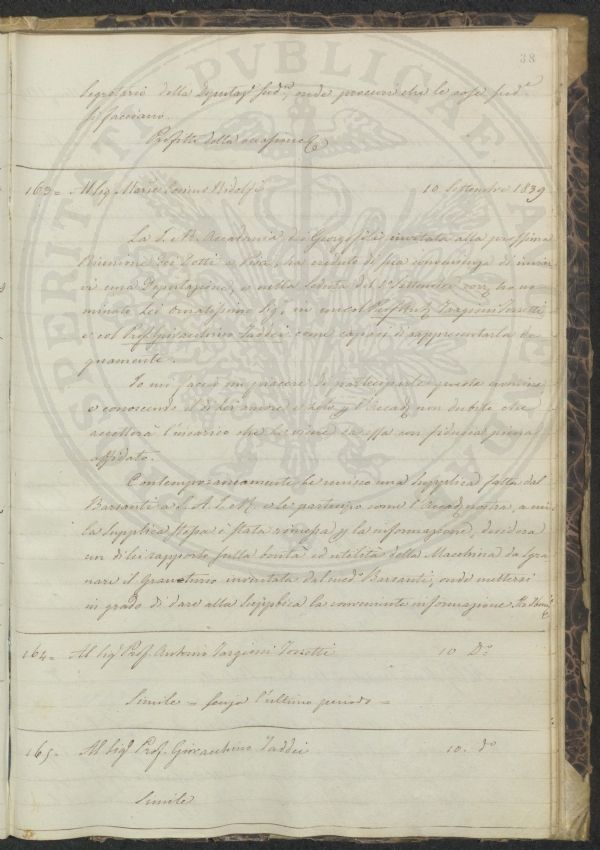 38
Segretario della Deputaz.e Sud.a, onde procuri che le cose sud.e
si facciano.
Profitto della occasione &
163= Al Sig. March. Cosimo Ridolfi 10 Settembre 1839
La I. e R. Accademia dei Georgofili invitata alla prossima
Riunione dei Dotti a Pisa, ha creduto di sua convenienza di inviar
vi una Deputazione, e nella seduta del 1° Settembre corr. ha no
minato Lei Ornatissimo Sig. in un col Prof. Ant. Targioni Tozzetti,
e col Prof. Giovacchino Taddei come capaci di rappresentarla de
gnamente.
Io mi faccio un piacere di parteciparle questa
e conoscendo il di Lei amore e zelo p. l'Accad. non dubito che
accetterà l'incarico che Le viene da essa con fiducia piena
affidato.
Contemporaneamente Le rimetto una Supplica fatta dal
Barsanti a S. A. I. e R. e Le partecipo come l'Accad. nostra, a cui
la Supplica stessa è stata rimessa p. la informazione, desidera
un di Lei rapporto sulla bontà ed utilità della Macchina da Sgra
nare il Granturco inventata dal med.o Barsanti, onde mettersi
in grado di dare alla Supplica la conveniente informazione.
164= Al Sig. Prof. Antonio Targioni Tozzetti 10 D.o
Simile = senza l'ultimo periodo =
165= Al Sig. Prof. Giovacchino Taddei 10. d.o
Simile